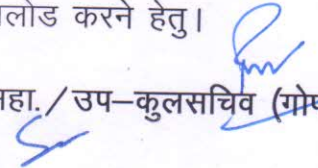 लोड करने हेतु।
हा./उप–कुलसचिव (गोप